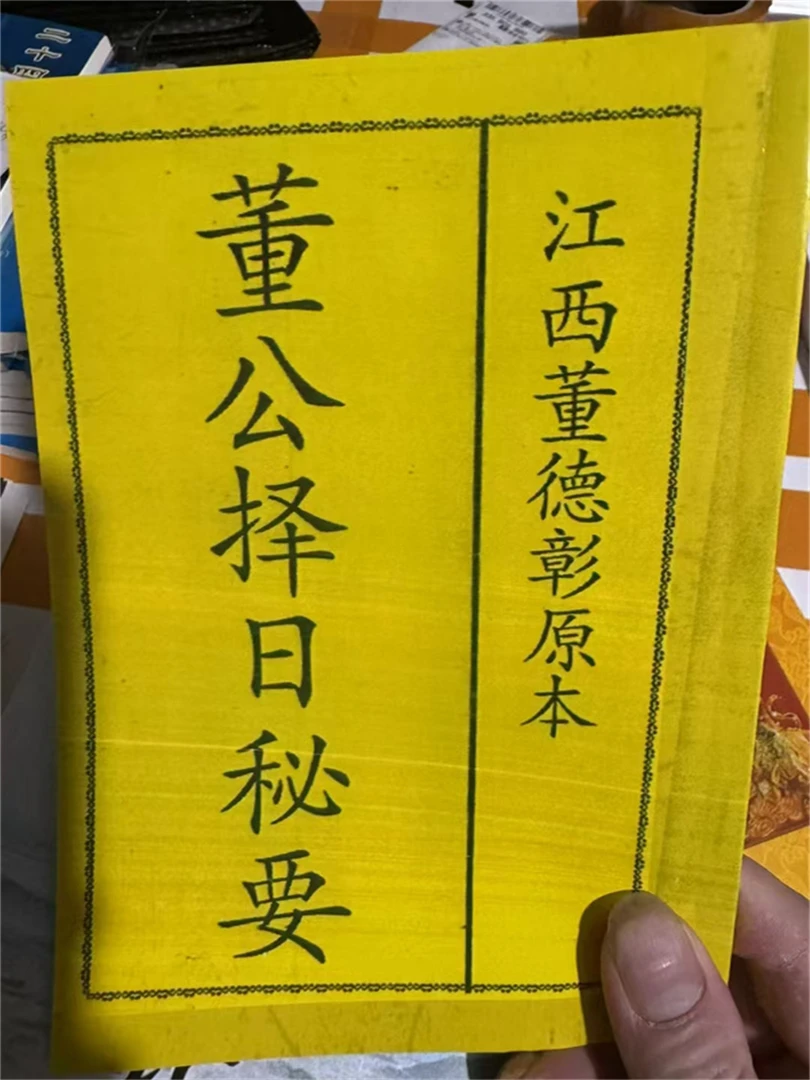 江西董德彰原本
董公择日秘要
二十四